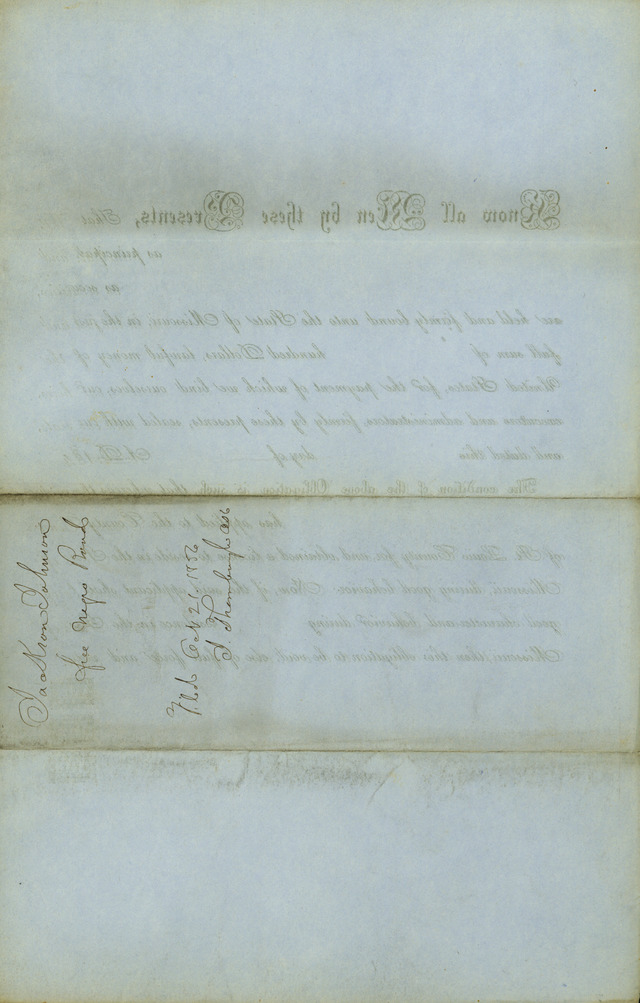 Jackson Johnson
free Negro Bond
Filed Oct 21 1856
S Thornburgh
Know all Men by these Presents, That
as principal
as
are held and firmly bound unto the State of Missouri, in the
full sum of hundred Dollars, lawful money of
United States, for the payment of which we bind ourselves, our
executors and administrators, firmly by these presents, sealed with
and dated this day of A.D. 18
The condition of the above Obligation is such that
has applied to the County
of St. Louis County for and obtained a license to reside in the
Missouri, during good behavior. Now, if the said applicant
good character and behavior during residence in the
Missouri, then this obligation to be void, else of full force and